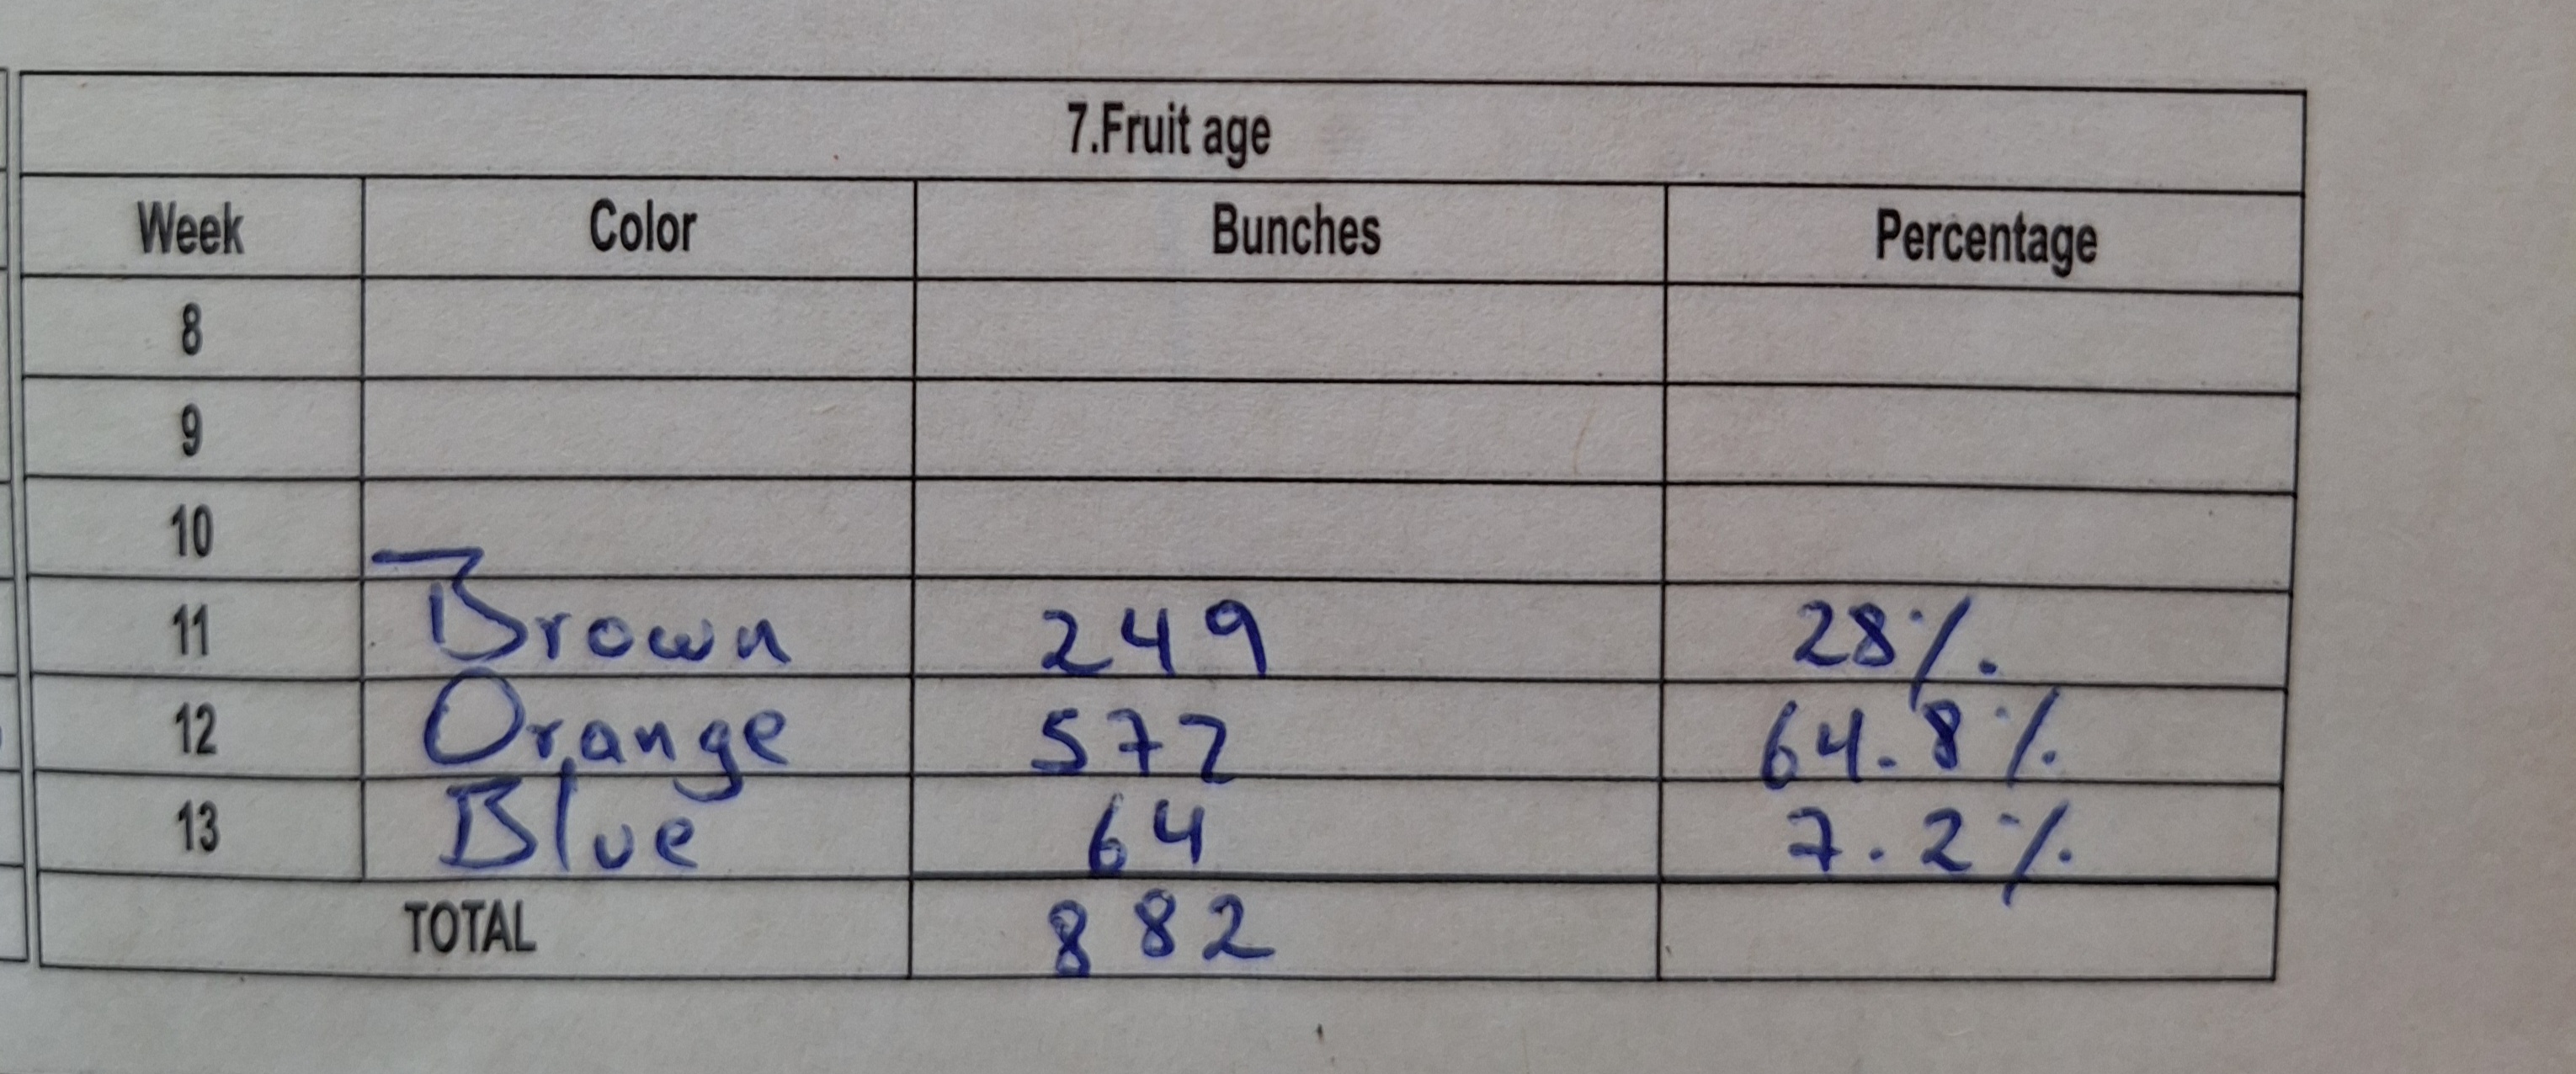 7.Fruit age
Week Color Bunches Percentage
8
9
10
11 Brown 249 28%
12 Orange 572 64.8%
13 Blue 64 7.2%
TOTAL 882